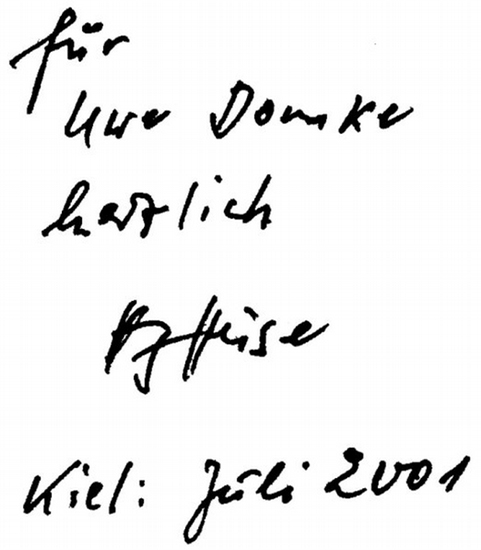 für
Uwe Domke
herzlich
Kiel: Juli 2001